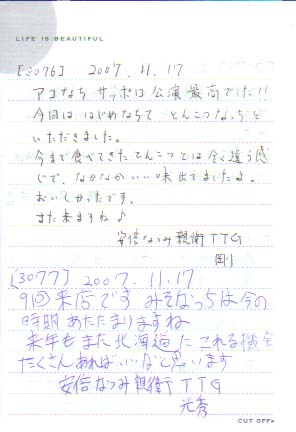 LIFE IS BEAUTIFUL
[3076] 2007.11.17
アコなち サッポロ公演最高でした!!
今回は はじめならて とんこつなっちを
いただきました。
今まで食べてきたとんこつとは全く違う感
じで、なかなかいい味出てましたよ。
おいしかったです。
また来ますね♪
安倍なつみ親衛TTG
剛
[3077] 2007.11.17
9回来店です みそなっちは今の
時期 あたたまりますね
来年もまた北海道にこれる機会
たくさんあればいいなと思います
安倍なつみ親衛 TTG
光秀
CUT OFF▸